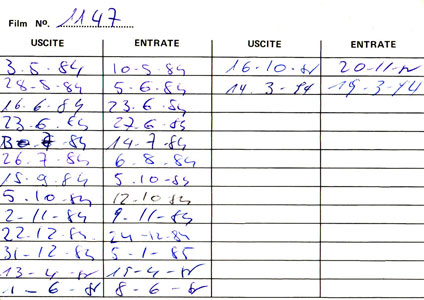 Film No. 1147
USCITE ENTRATE USCITE ENTRATE
3.5.84 10-5.84 16.10.8r 20-11-8r
28-5-84 5-6.84 14.3-94 19.3-94
16.6.84 23.6.84
23.6.84 27.6-84
-84 14-7-84
26.7.84 6-8.84
15.9.84 5.10-84
5.10.84 12.10 84
2-11-84 9-11-84
22.12.84 24-12.84
31-12.84 5-1-85
13-4-8r 15-4-8r
1-6-8r 8-6-8r